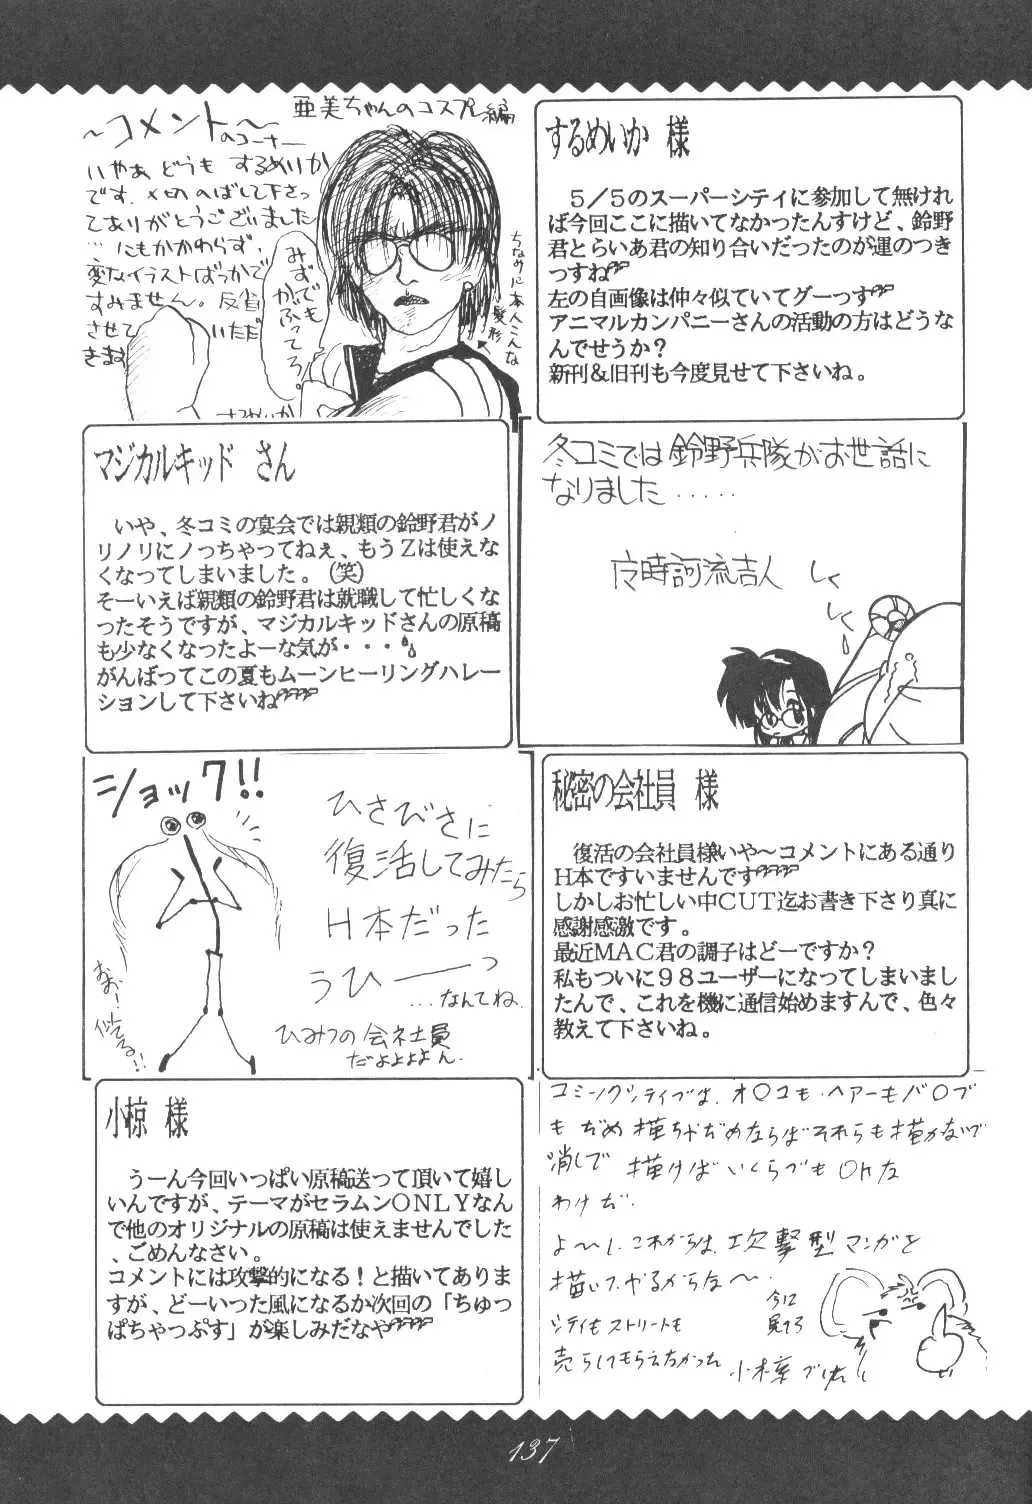 亜美ちゃんのコスプレ編
〜コメント〜
のコーナー
いやぁ どうも するめいか
です。〆切 のばして下さっ
てありがとうございました
…にもかかわらず、
変なイラストばっかで
すみません。反省
させて いただ
きます
みずでも
かぶってろ。
ちなみに本人こんな
髪形
するめいか
するめいか 様
5/5のスーパーシティに参加して無けれ
ば今回ここに描いてなかったんすけど、鈴野
君とらいあ君の知り合いだったのが運のつき
っすね
左の自画像は仲々似ていてグーっす
アニマルカンパニーさんの活動の方はどうな
んでせうか?
新刊&旧刊も今度見せて下さいね。
マジカルキッド さん
いや、冬コミの宴会では親類の鈴野君がノ
リノリにノっちゃってねぇ、もうZは使えな
くなってしまいました。(笑)
そーいえば親類の鈴野君は就職して忙しくな
ったそうですが、マジカルキッドさんの原稿
も少なくなったよーな気が・・・
がんばってこの夏もムーンヒーリングハレー
ションして下さいね
冬コミでは鈴野兵隊がお世話に
なりました.....
夜時訶流吉人
しく
しく
ショック!!
ひさびさに
復活してみたら
H本だった
うひーーっ
...なんてね。
おおー!
似てる!!
ひみつの会社員
だよよよよん。
秘密の会社員 様
復活の会社員様いや〜コメントにある通り
H本ですいませんです
しかしお忙しい中CUT迄お書き下さり真に
感謝感激です。
最近MAC君の調子はどーですか?
私もついに98ユーザーになってしまいまし
たんで、これを機に通信始めますんで、色々
教えて下さいね。
小椋 様
うーん今回いっぱい原稿送って頂いて嬉し
いんですが、テーマがセラムンONLYなん
で他のオリジナルの原稿は使えませんでした
、ごめんなさい。
コメントには攻撃的になる!と描いてありま
すが、どーいった風になるか次回の「ちゅっ
ぱちゃっぷす」が楽しみだなや
コミックシティでは、オ〇コも・ヘアーもバ〇ブ
もだめ 描ちゃだめならばそれらも描かないで
消しで 描けば いくらでもOkな
わけだ。
よ〜し、これからは、攻撃型マンガを
描いてやるからな〜。
今に
見てろ
シティもストリートも
売らしてもらえなかった 小椋でした
137